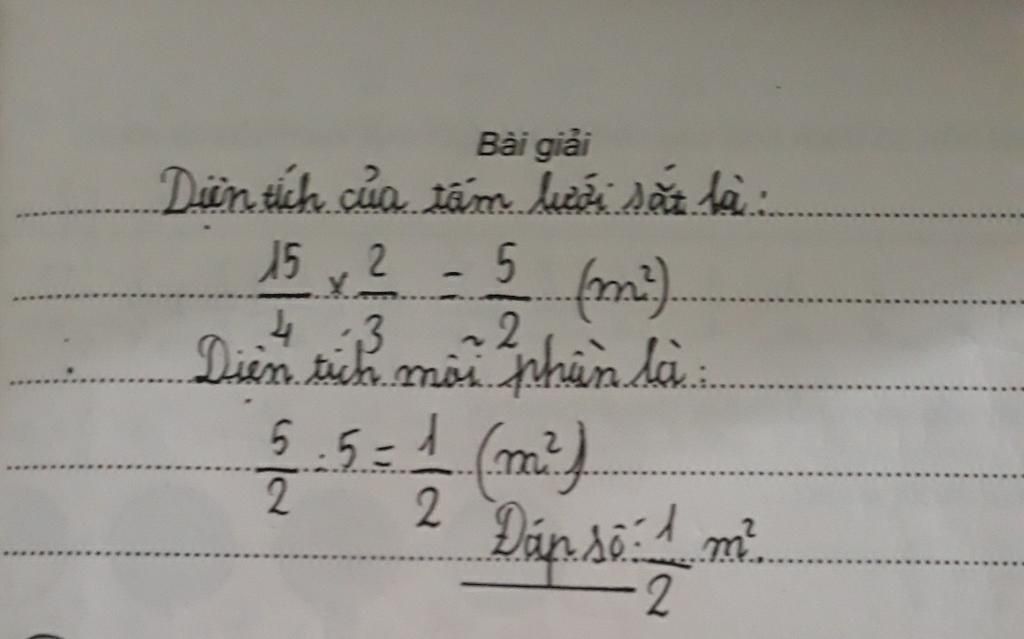 Bài giải
Diện tích của tấm lưới sắt là:
15/4 × 2/3 = 5/2 (m²)
Diện tích mỗi phần là:
5/2 : 5 = 1/2 (m²)
Đáp số: 1/2 m².